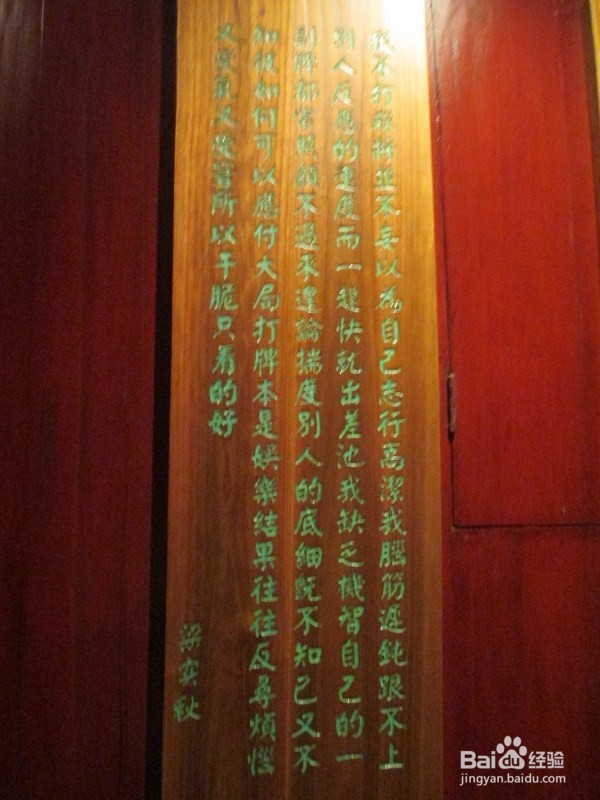 我不打麻將並不妄以為自己志行高潔我腦筋遲鈍跟不上
別人反應的速度而一趕快就出差池我缺乏機智自己的一
副牌都常照顧不過來遑論揣度別人的底細既不知己又不
知彼如何可以應付大局打牌本是娛樂結果往往反尋煩惱
又受氣又受窘所以干脆只看的好
梁实秋
Baidu 经验
jingyan.baidu.com